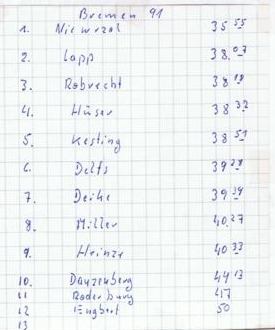 Bremen 91
1. Niewrzol 35 55
2. Lapp 38.07
3. Robrecht 38 18
4. Hüser 38 32
5. Kesting 38 51
6. Delfs 39 28
7. Deike 39 34
8. Miller 40.27
9. Heinze 40 33
10. Danzenberg 44 13
11 Rodenburg 47
12 Engbert 50
13